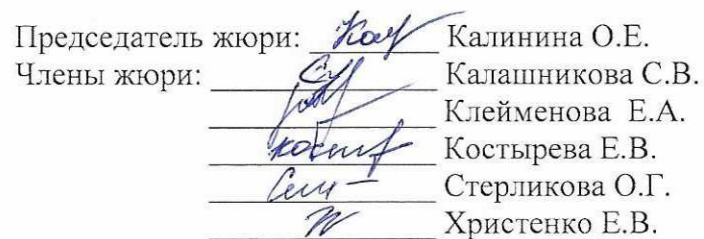 Председатель жюри: Калинина О.Е.
Члены жюри: Калашникова С.В.
Клейменова Е.А.
Костырева Е.В.
Стерликова О.Г.
Христенко Е.В.